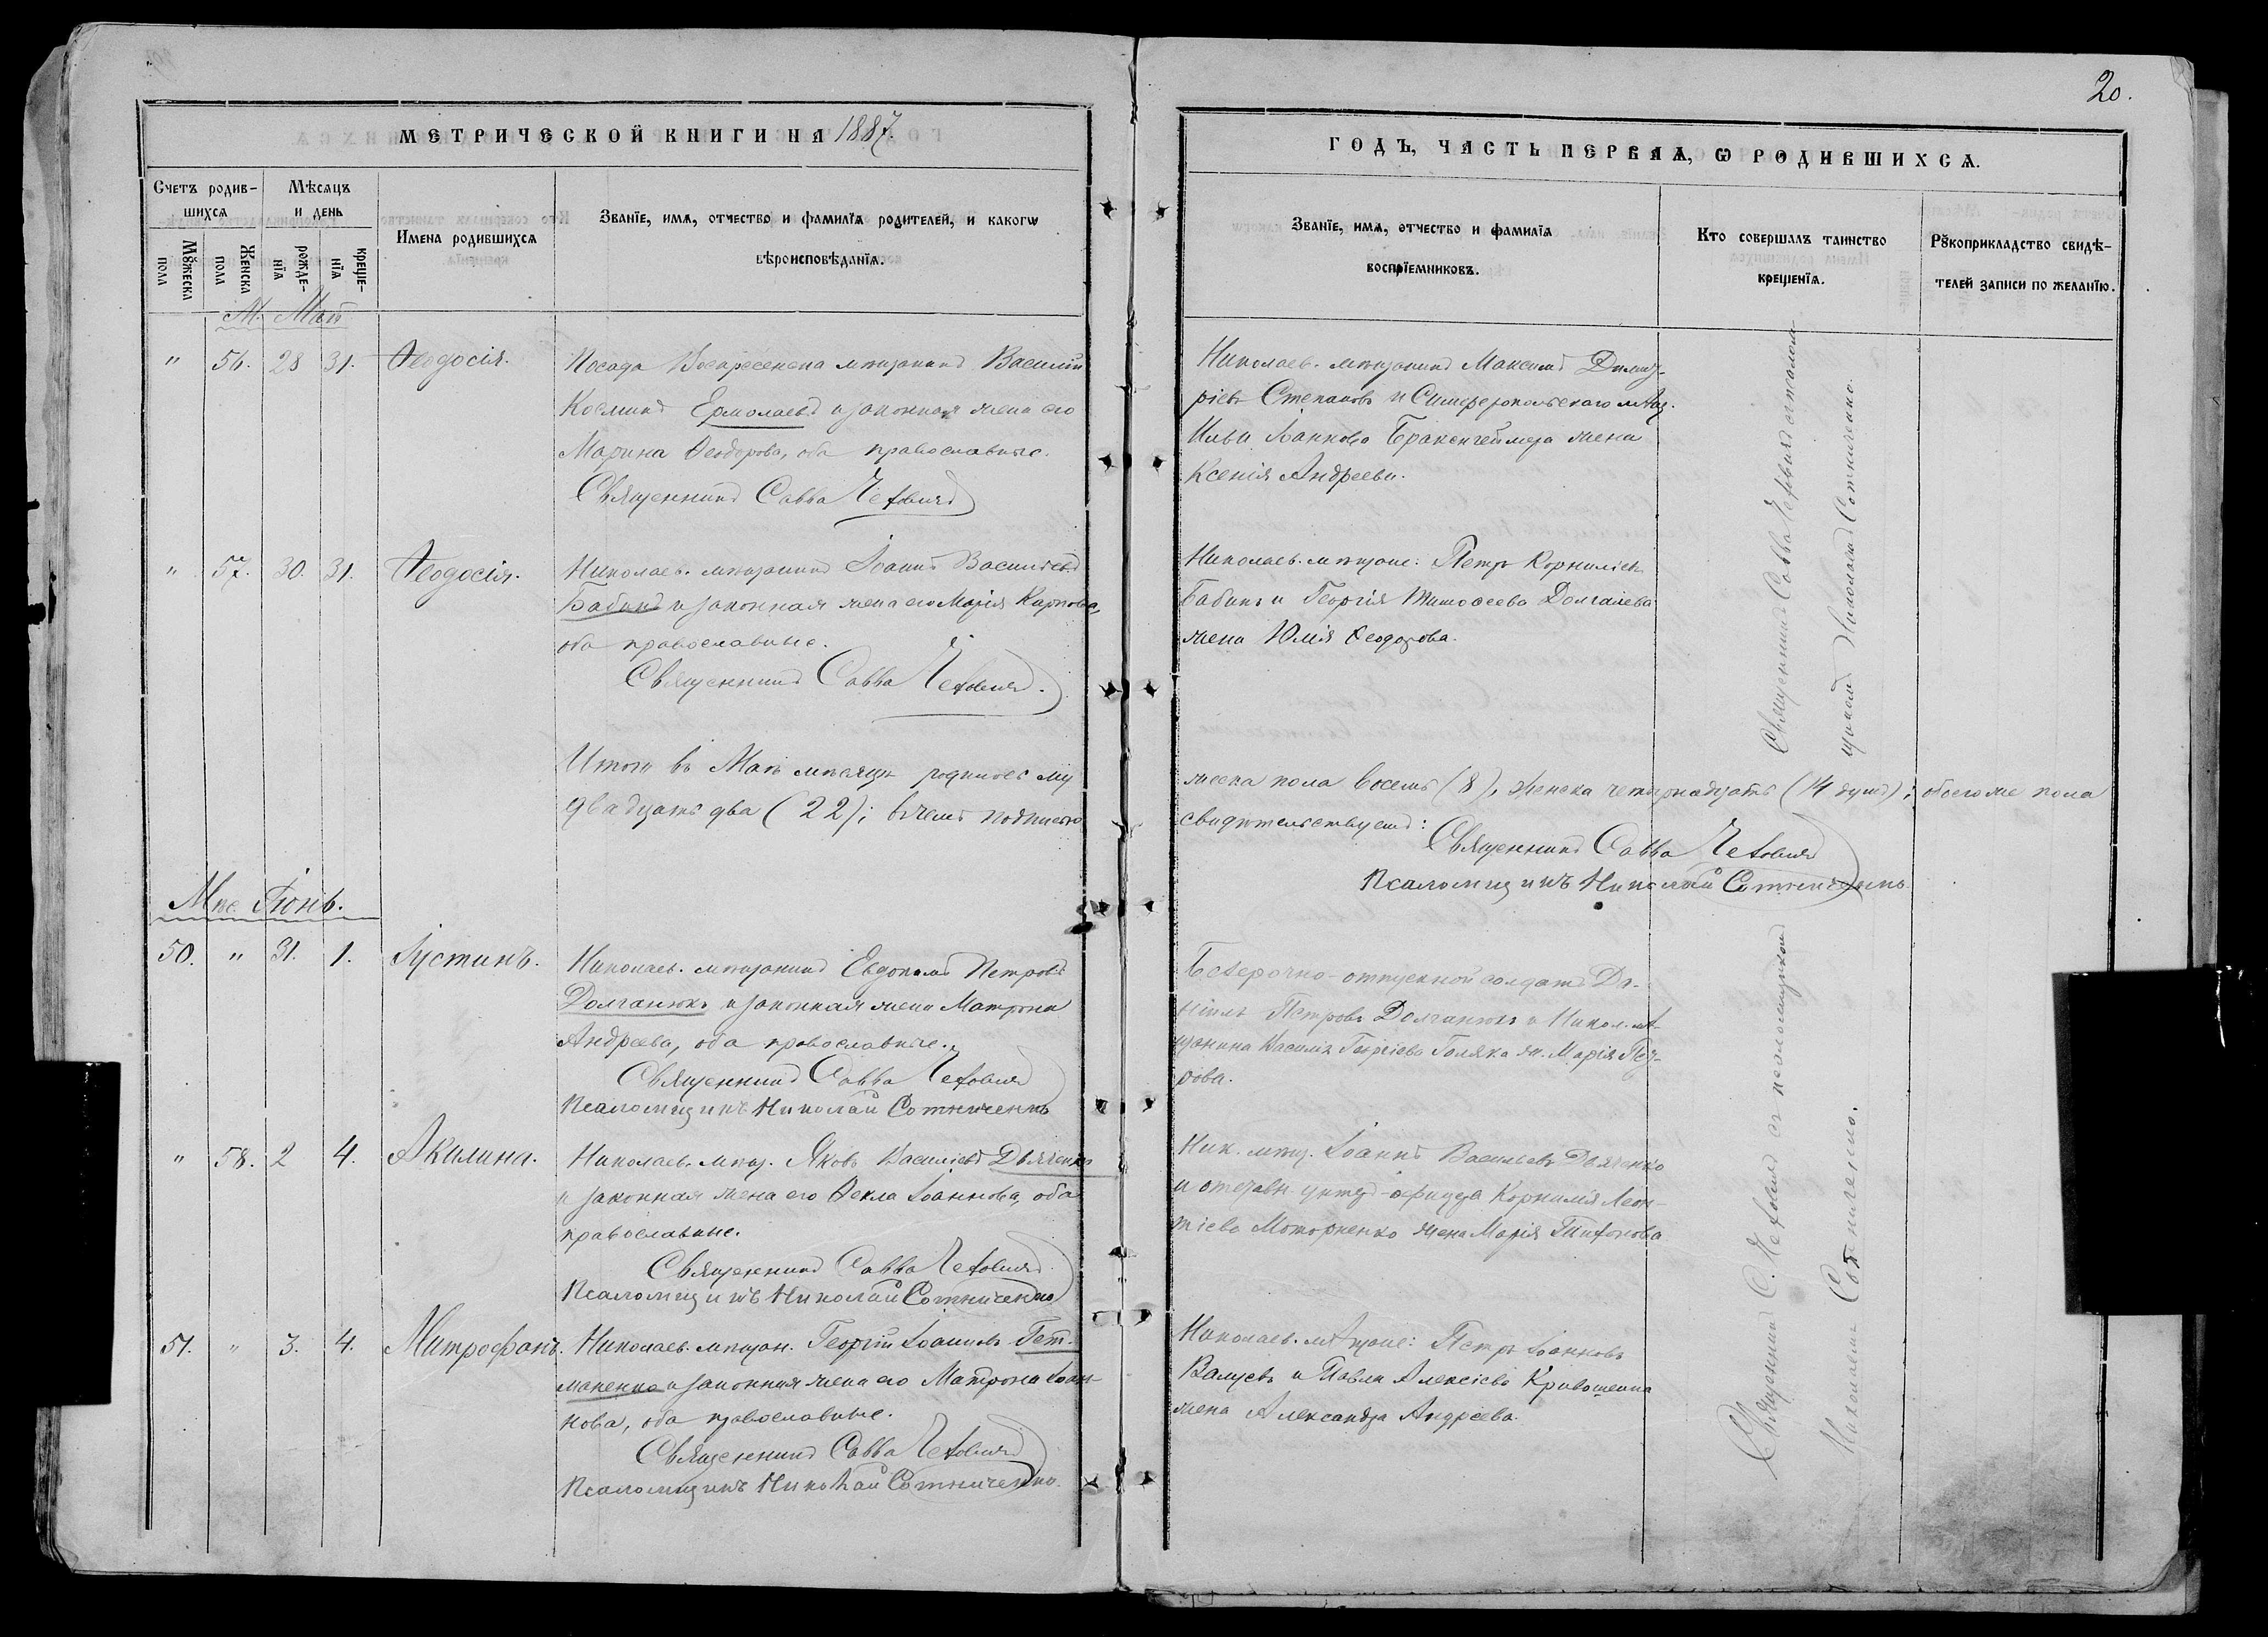 20.
МЕТРИЧЕСКОЙ КНИГИ НА 1887.
Счетъ родив-
шихся
Мѣсяцъ
и день
Мꙋжеска
пола
Женска
пола
рожде-
нїя
креще-
нїя
Имена родившихся
Званїе, имя, отчество и фамилїя родителей, и какогѡ
вѣроисповѣданїя.
М. Май
" 56. 28 31. Ѳеодосія.
Посада Воскресенска мѣщанинъ Василій
Косминъ Ермолаевъ и законная жена его
Марина Ѳеодорова, оба православные.
Священникъ Савва
" 57. 30. 31. Ѳеодосія.
Николаев. мѣщанинъ Іоаннъ Васильевъ
Бабинъ и законная жена его Марія Карпова,
оба православные.
Священникъ Савва
Итого въ Маѣ мѣсяцѣ родилось му
двадцать два (22); въ чемъ подписью
Мѣс. Іюнь.
50. " 31. 1. Іустинъ.
Николаев. мѣщанинъ Евдокимъ Петровъ
Долганюкъ и законная жена Матрона
Андреева, оба православные.
Священникъ Савва
Псаломщикъ Николай Сотниченко
" 58. 2 4. Акилина.
Николаев. мѣщ. Яковъ Васильевъ Дьяченко
и законная жена его Ѳекла Іоаннова, оба
православные.
Священникъ Савва
Псаломщикъ Николай Сотниченко
51. " 3. 4. Митрофанъ.
Николаев. мѣщан. Георгій Іоанновъ Гет-
маненко и законная жена его Матрона Іоан-
нова, оба православные.
Священникъ Савва
Псаломщикъ Николай Сотниченко.
ГОДЪ, ЧАСТЬ ПЕРВАЯ, Ѡ РОДИВШИХСЯ.
Званїе, имя, отчество и фамилїя
воспрїемниковъ.
Кто совершалъ таинство
крещенїя.
Рꙋкоприкладство свидѣ-
телей записи по желанїю.
Николаев. мѣщанинъ Максимъ Димит-
ріевъ Степановъ и Симферопольскаго мѣщ.
Ильи Іоаннова Бракенгеймера жена
Ксенія Андреева.
Николаев. мѣщане: Петръ Корниліевъ
Бабинъ и Георгія Тимоѳеева Долгалева
жена Юлія Ѳеодорова.
Священникъ Савва
Николаемъ Сотниченко.
жеска пола восемь (8), женска четырнадцать (14 душъ); обоего же пола
свидѣтельствуемъ:
Священникъ Савва
Псаломщикъ Николай Сотниченко
Безсрочно-отпускной солдатъ Да-
ніилъ Петровъ Долганюкъ и Никол. мѣ-
щанина Василія Георгіева Голяка ж. Марія Пет-
рова.
Ник. мѣщ. Іоаннъ Васильевъ Дьяченко
и отставн. унтер-офицера Корнилія Леон-
тіева Моторненко жена Марія Тихонова
Николаев. мѣщане: Петръ Іоанновъ
Валуевъ и Павла Алексіева Кривошеина
жена Александра Андреева.
Священникъ С. съ псаломщикомъ
Николаемъ Сотниченко.